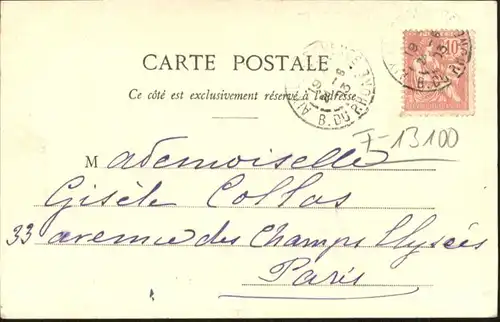 CARTE POSTALE
Ce côté est exclusivement réservé à l'adresse
B. DU RHONE
10
B. DU RHONE
F-13100
Mademoiselle
Gisèle Collas
33 avenue des Champs Elysées
Paris